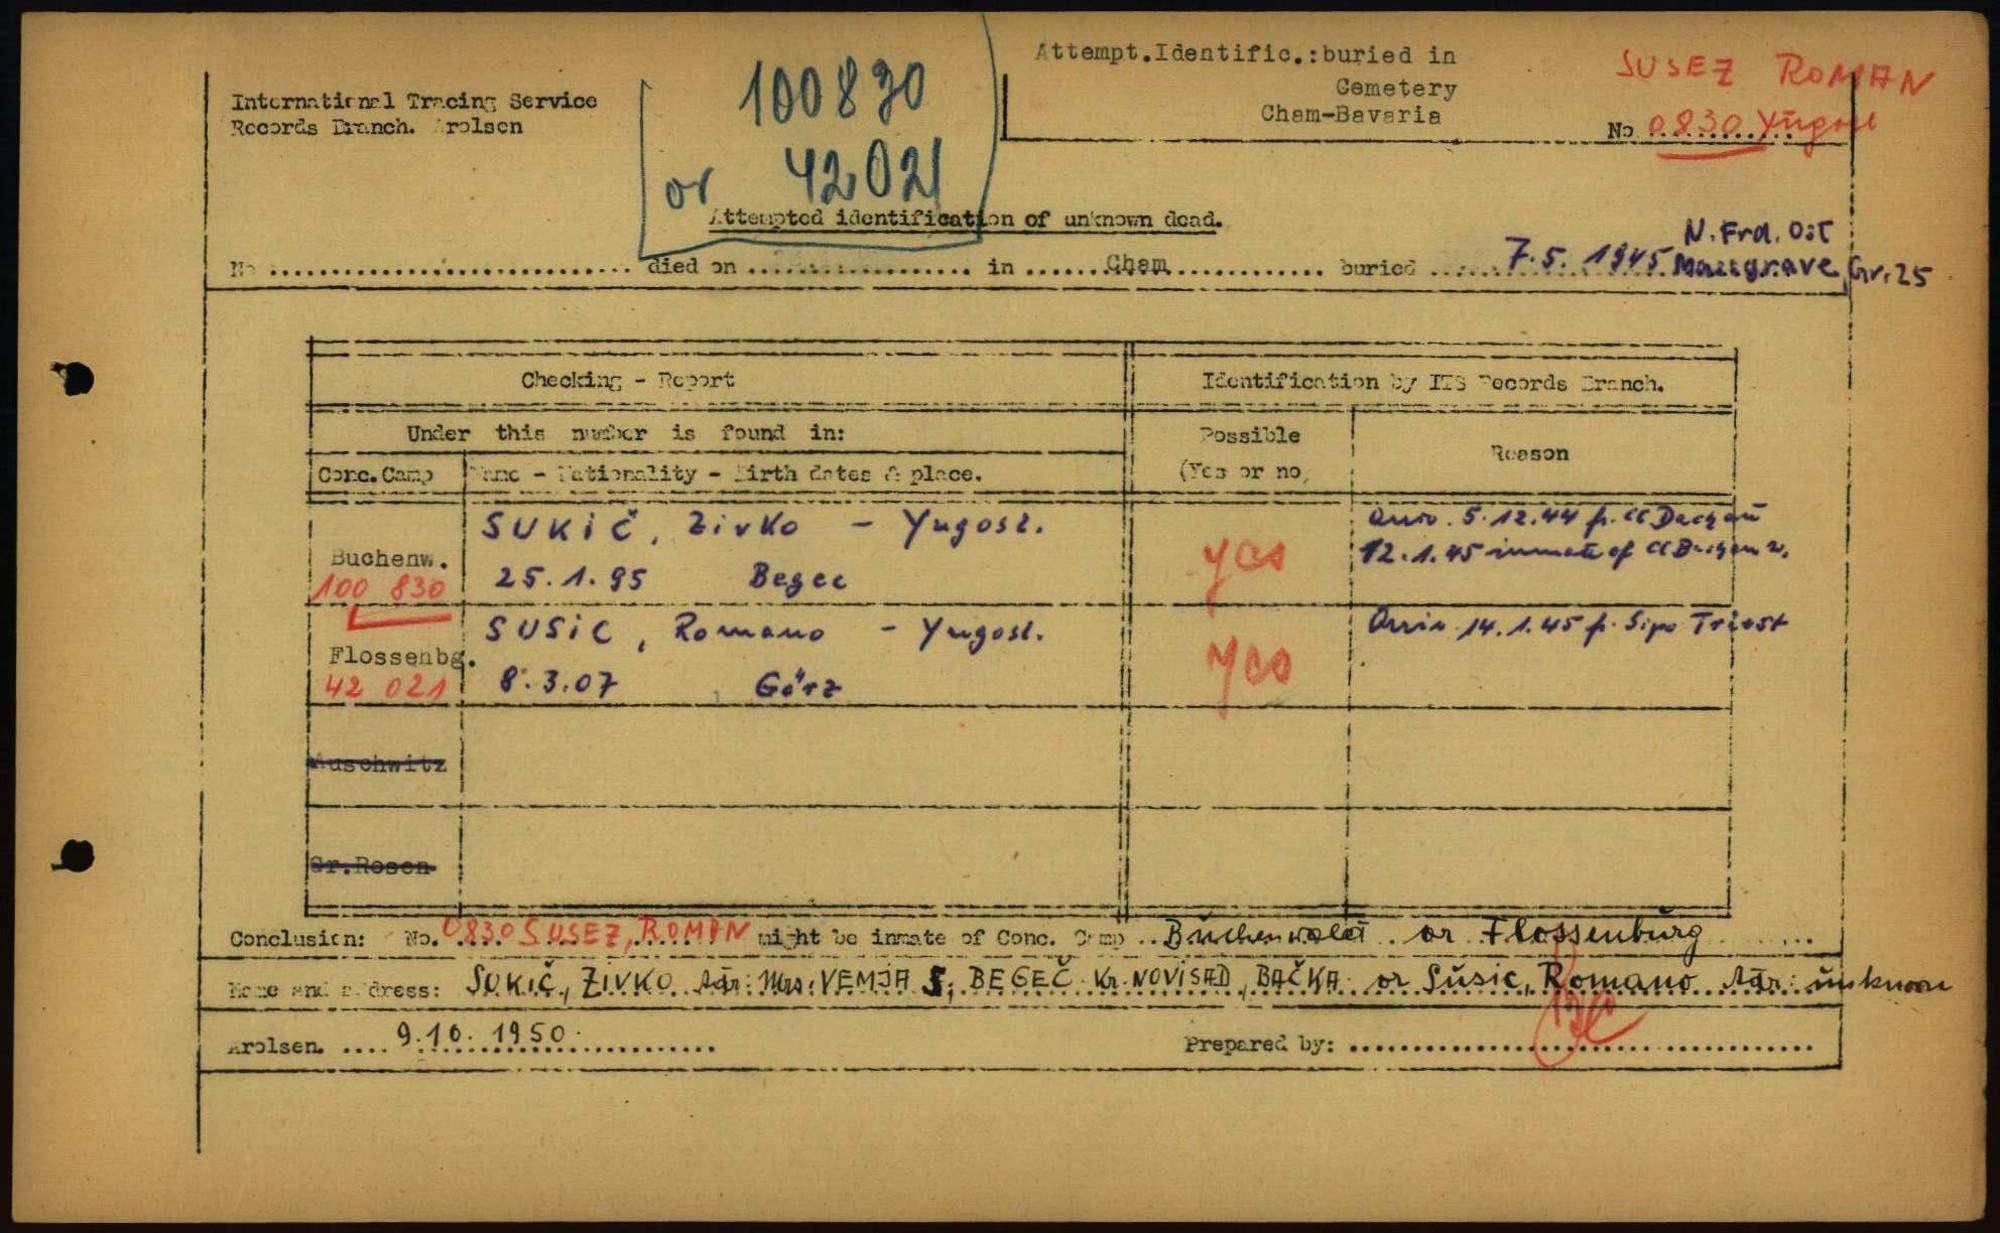 International Tracing Service
Records Branch. Arolsen
100830
or 42021
Attempt.Identific.:buried in
Cemetery
Cham-Bavaria
SUSEZ ROMAN
No 0830 Yugosl
Attempted identification of unknown dead.
N. Frd. Ost
No .............................. died on .................. in ...... Cham ............ buried .... 7.5. 1945 Massgrave, Gr. 25
Checking - Report
Identification by ITS Records Branch.
Under this number is found in:
Possible
(Yes or no,
Reason
Conc.Camp
Name - Nationality - Birth dates & place.
SUKIČ, Zivko - Yugosl.
Buchenw.
100 830
25.1.95 Begec
yes
Arriv. 5.12.44 fr. CC Dachau
12.1.45 inmate of CC Buchenw.
SUSIC, Romano - Yugosl.
Flossenbg.
42 021
8.3.07 Görz
yes
Arriv. 14.1.45 fr. Sipo Triest
Auschwitz
Gr.Rosen
Conclusion: No. 0830 SUSEZ, ROMAN might be inmate of Conc. Camp .. Buchenwald or Flossenburg
Name and address: SUKIČ, ZIVKO Adr: Mrs: VEMJA S; BEGEČ Kr. NOVISAD, BAČKA or Susic, Romano Adr: unknown
Arolsen. .... 9.10. 1950 .
Prepared by: ........................